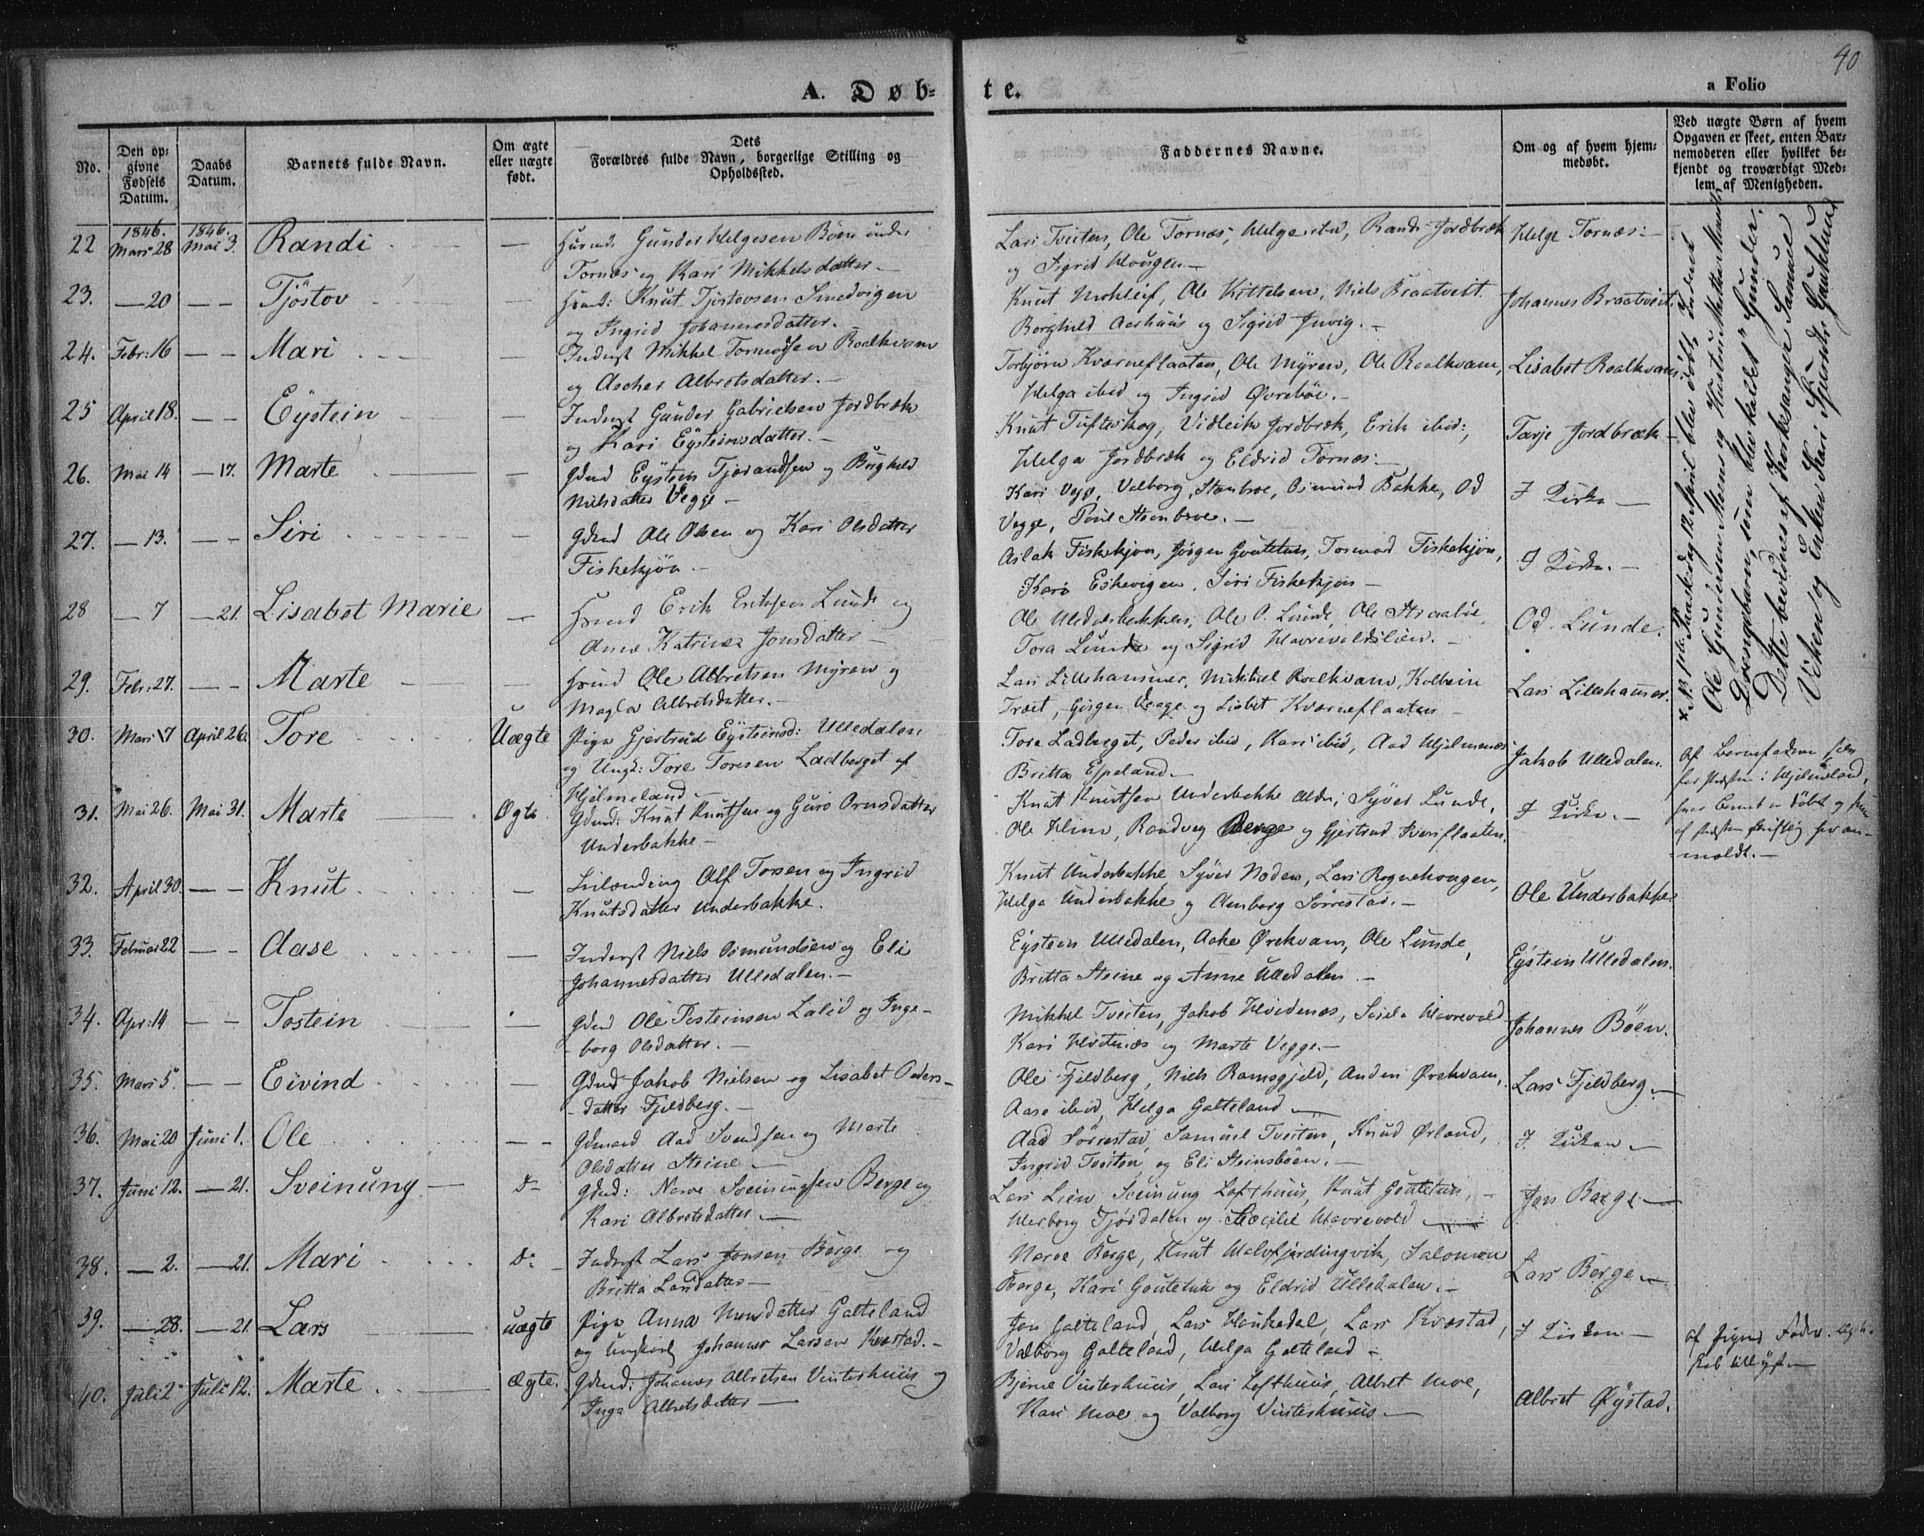 40
A. Døbte.
a Folio
No.
Den opgivne Fødsels Datum.
Daabs Datum.
Barnets fulde Navn.
Om ægte eller uægte født.
Dets Forældres fulde Navn, borgerlige Stilling og Opholdssted.
Faddernes Navne.
Om og af hvem hjemmedøbt.
Ved uægte Børn af hvem Opgaven er skeet, enten Barnemoderen eller hvilket bekjendt og troværdigt Medlem af Menigheden.
1846. 1846.
22 Mars 28 Mai 3. Randi — Gunder Helgesen Bøen under
Tornæs og Kari Mikkelsdatter.—
Lars Tveiten, Ole Tornæs, Helge ibid, Randi Jordbræk
og Sigrid Hougen—
Helge Tornæs.—
23. —20 — — Tjöstov — Knut Tjöstovsen Smedvigen
og Ingrid Johannesdatter.—
Knut Mohleif, Ole Kittelsen, Niels Braatveit.
Borghild Aarhuus og Sigrid Juvig.—
Johannes Braatveit
24. Febr: 16 — — Mari — Inderst Mikkel Tormodsen Roalkvam
og Ascher Albretsdatter.—
Torbjørn Kværneflaaten, Ole Myren, Ole Roalkvam,
Helga ibid og Ingrid Øvrebøe.—
Lisabet Roalkvam
25 April 18. — — Eÿstein — Inderst Gunder Gabrielsen Jordbræk
og Kari Eÿsteinsdatter.—
Knut Tufteskog, Vidleik Jordbræk, Erik ibid:,
Helga Jordbræk og Eldrid Tornæs:—
Tarje Jordbræk—
26. Mai 14 —17. Marte — Gdmd Eÿstein Tjerandsen og Borghild
Nielsdatter Vegge—
Kari Veje, Valborg Stenbroe, Osmund Bakke, Od
Vegge, Poul Stenbroe.—
I Kirken—
27. —13. — — Siri — Gdmd Ole Olsen og Kari Olsdatter
Fiskekjøn.—
Aslak Fiskekjøn, Jørgen Goutetun, Tormod Fiskekjøn,
Kari Eskevigen, Siri Fiskekjøn—
I Kirken.—
28 —7 —21. Lisabet Marie — Hmd Erik Eriksen Lunde og
Anne Katrine Jonsdatter—
Ole Ulledalsbakken, Ole O. Lunde, Ole Straabøe,
Tora Lunde og Sigrid Havrevoldslien.—
Od. Lunde.
29. Febr: 27. — — Marte — Hmd Ole Albretsen Myren og
Magla Albretsdatter.—
Lars Lillehammer, Mikkel Roalkvam, Kolbein
Træet, Gørgen Vegge og Lisbet Kværneflaaten—
Lars Lillehamer.
30. Mars 7 April 26. Tore Uægte Pige Gjertrud Eÿsteinsd: Ulledalen
og Ungk: Tore Toresen Ladberget af
Hjelmeland.—
Tore Ladberget, Peder ibid, Kari ibid, Aad Hjelmenæs
Britta Espeland.—
Jakob Ulledalen.
af Barnefaderen selv
for Præsten i Hjelmeland,
hvor Barnet er døbt og
af Præsten skriftlig her an-
meldt.—
31. Mai 26. Mai 31. Marte Ægte Gdmd: Knut Knutsen og Guro Ormsdatter
Underbakke—
Knut Knutsen Underbakke ældre, Sÿver Lunde,
Ole Hiim, Randveg Berge og Gjertrud Kverflaaten.
I Kirken.—
32. April 30. — — Knut — Alf Torsen og Ingrid
Knutsdatter Underbakke.
Knut Underbakke, Sÿver Noden, Lars Rognehougen,
Helga Underbakke og Amberg Sørrestad.—
Ole Underbakke
33. Februar 22 — — Aase — Inderst Niels Osmundsen og Eli
Johannesdatter Ulledalen.—
Eÿstein Ulledalen, Aake Ørekvam, Ole Lunde,
Britta Steine og Anne Ulledalen.—
Eÿstein Ulledalen.
34. Apr: 14 — — Tostein — Gdmd Ole Tosteinsen Lalid og Inge-
borg Olsdatter.—
Mikkel Tveiten, Jakob Hvidenæs, Havrevold
Kari Hvidnæs og Marte Vegge.—
Johannes Bøen.
35. Mars 5 — — Eivind — Gdmd Jakob Nielsen og Lisabet Peders-
datter Fjeldberg.—
Ole Fjeldberg, Niels Ramsgjeld, Anders Ørekvam,
Aase ibid, Helga Galteland—
Lars Fjeldberg—
36. Mai 20 Juni 1. Ole — — Gdmand Aad Svendsen og Marte
Olsdatter Steine—
Aad Sørrestad, Samuel Tveiten, Knud Ørland,
Ingrid Tveiten og Eli Steinsbøen.—
I Kirken—
37. Juni 12. —21. Sveinung — d— Gdmd: Nerve Sveinungsen Berge og
Kari Albretsdatter—
Lars Lien, Sveinung Lofthuus, Knut Goutetun,
Herborg Tjørdalen og Cæcilie Havrevold—
Jon Berge—
38. —2. —21. Mari d: Inderst Lars Jonsen Berge og
Britta Larsdatter—
Nerve Berge, Knut Halvfjordingvik, Salomon
Berge, Kari Goutetun og Eldrid Ulledalen.—
Lars Berge—
39. —28. —21. Lars — uægte Pige Anna Monsdatter Galteland
og Ungkarl Johannes Larsen Kvæstad.—
Jon Galteland, Lars Houkedal, Lars Kvæstad,
Valborg Galteland, Helga Galteland—
I Kirken—
af Pigens Fader.
40. Juli 2 Juli 12. Marte Ægte. Gdmd: Johanes Albretsen Vinterhuus og
Inga Albretsdatter—
Bjerne Vinterhuus, Lars Lofthuus, Albret Moe,
Kari Moe og Valborg Vinterhuus.—
Albret Øÿstad.
x NB 1ste Paaskedag 12 April blev døbt Inderst
Ole Gundersen Moens og Hustru Mette
Drengebarn, som blev kaldet "Gunder."
Dette bevidnes af Kirkesanger Samuel
Viken og Enken Kari Sjursdr. Gauthun